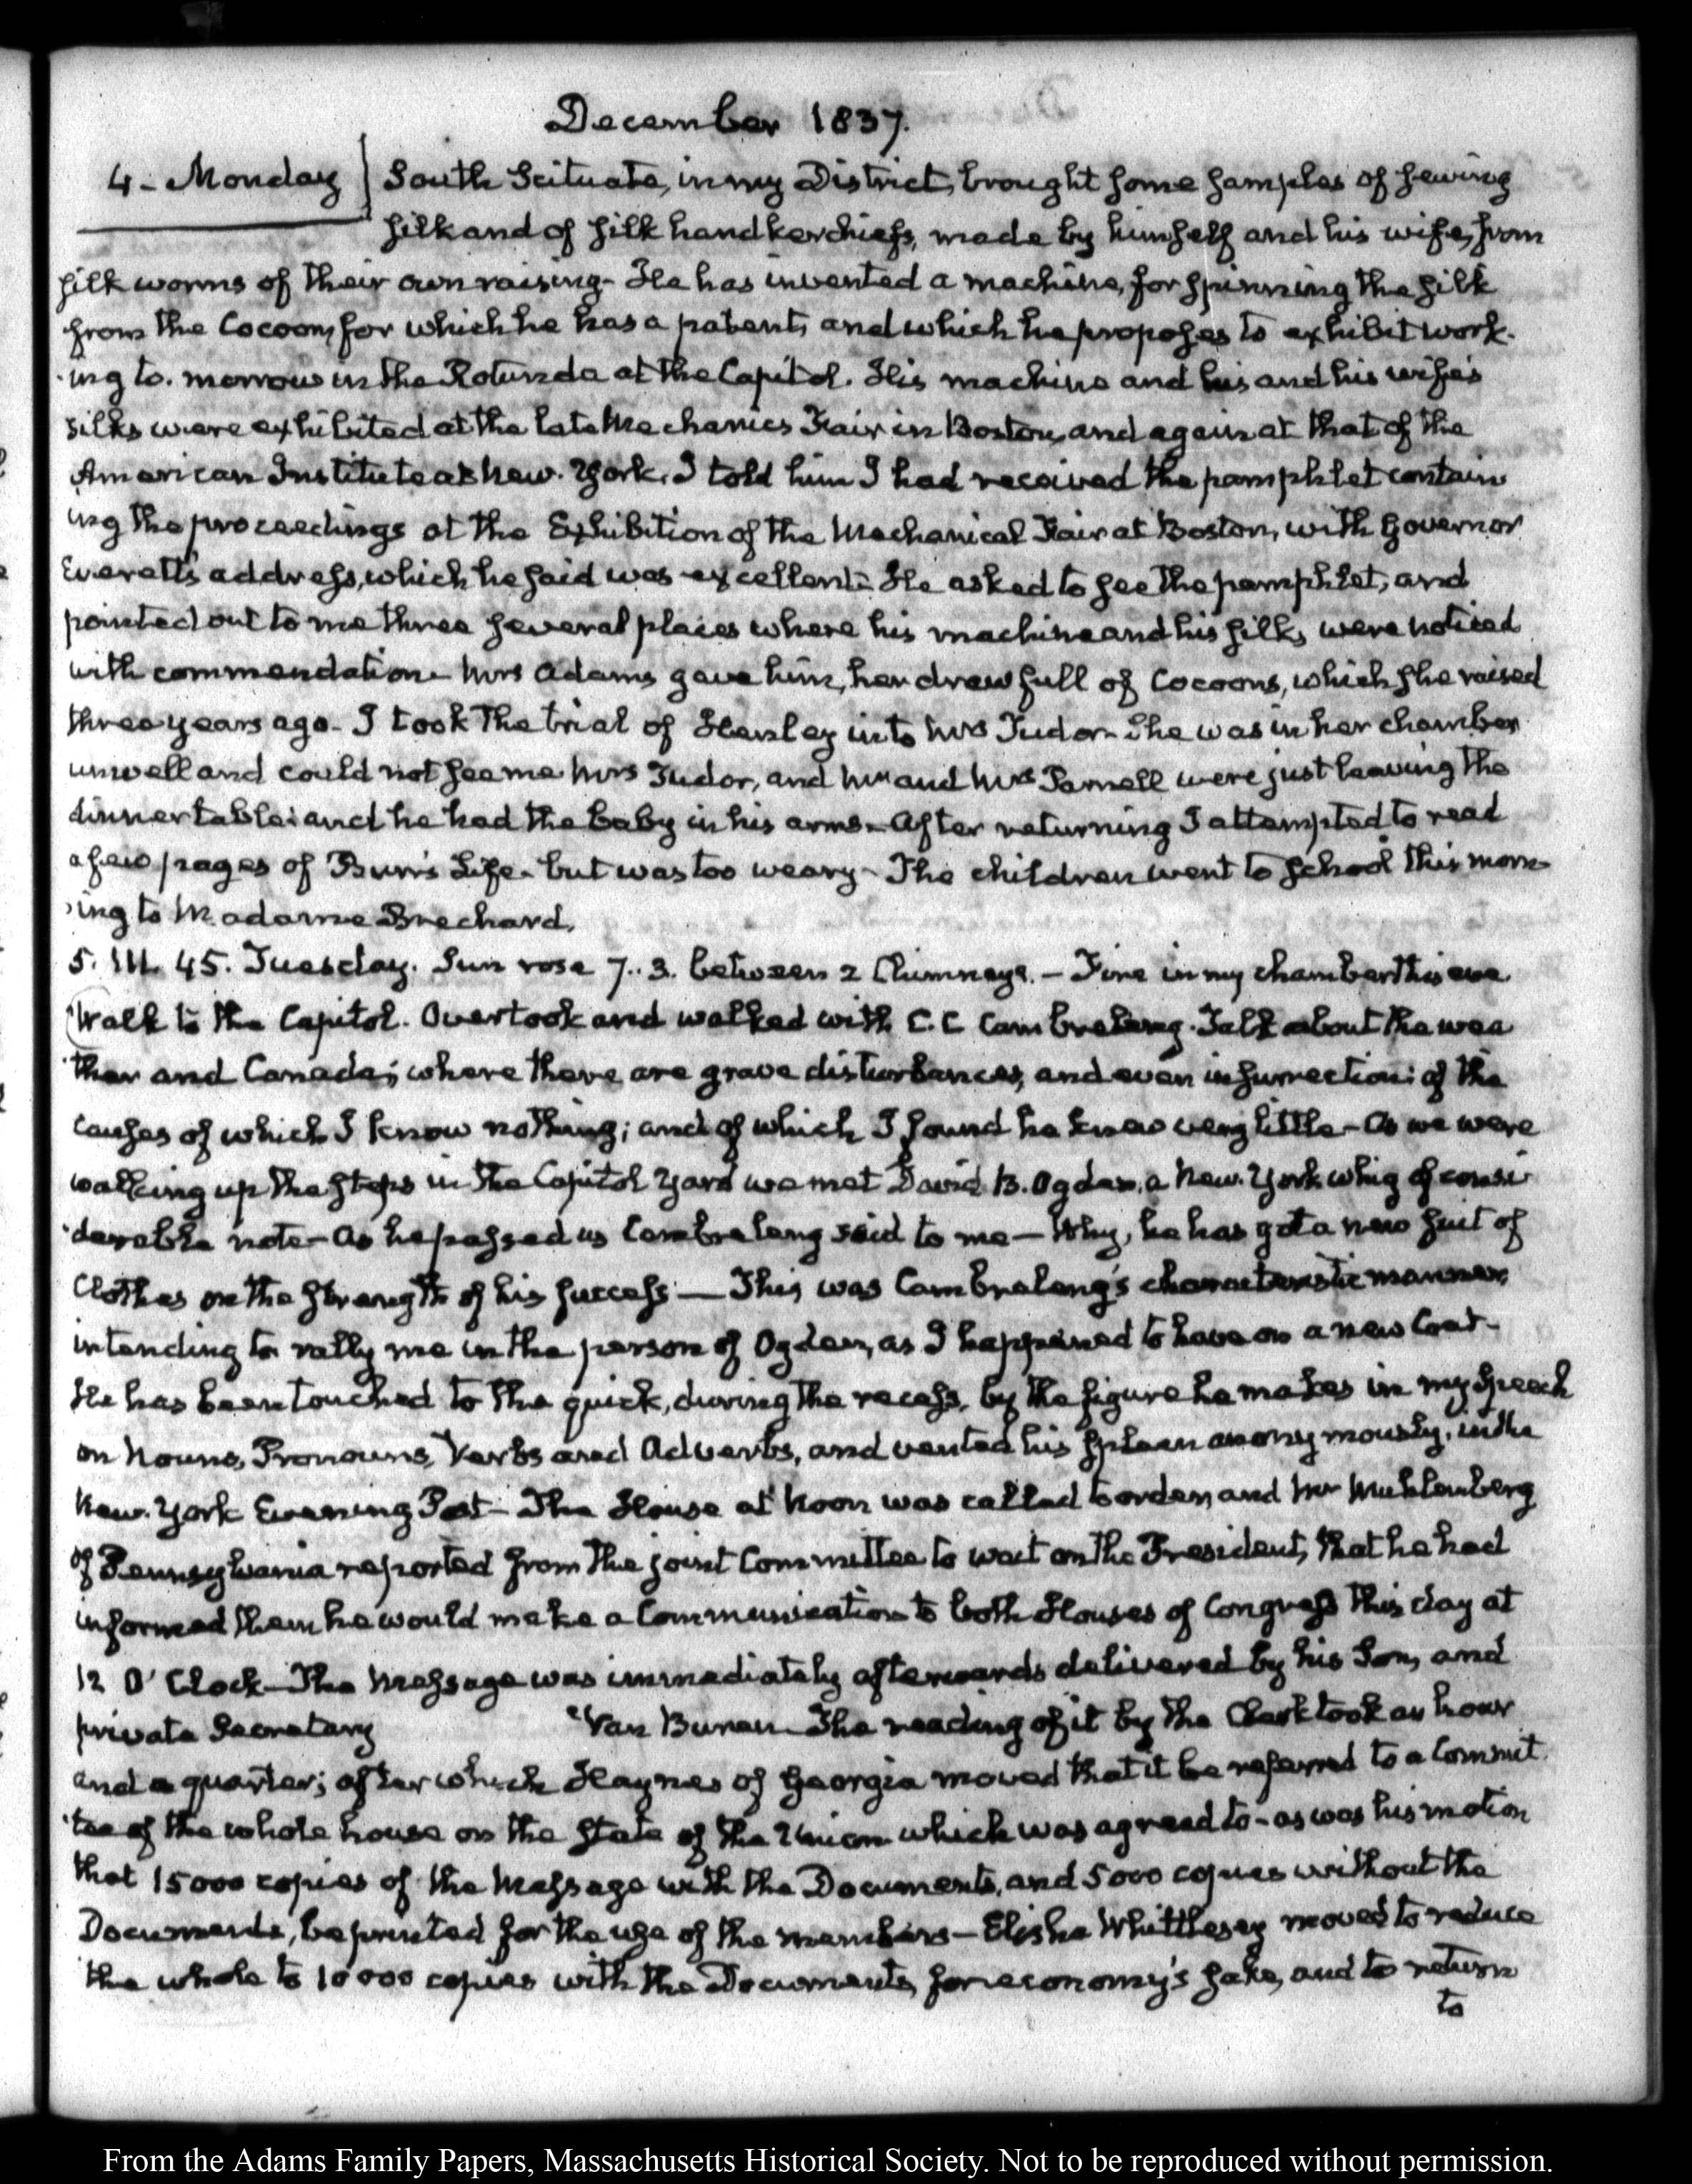 December 1837.
4 - Monday
South Scituate, in my District, brought some samples of sewing
silk and of silk handkerchiefs, made by himself and his wife, from
silk worms of their own raising - He has invented a machine, for spinning the silk
from the Cocoon, for which he has a patent, and which he proposes to exhibit work-
ing to-morrow in the Rotunda at the Capitol. His machine and his and his wife's
silks were exhibited at the late Mechanics Fair in Boston, and again at that of the
American Institute at New-York. I told him I had received the pamphlet contain
ing the proceedings at the Exhibition of the Mechanical Fair at Boston, with Governor
Everett's address, which he said was excellent - He asked to see the pamphlet, and
pointed out to me three several places where his machine and his silks were noticed
with commendation - Mrs Adams gave him, her draw full of Cocoons, which she raised
three years ago - I took the trial of into Mrs Tudor - She was in her chamber
unwell and could not see me Mrs Tudor, and Mr and Mrs were just leaving the
dinner table; and he had the baby in his arms - After returning I attempted to read
a few pages of Burr's Life - but was too weary - The children went to School this morn-
ing to Madame Brechard.
5. III. 45. Tuesday. Sun rose 7..3. between 2 Chimneys. - Fire in my chamber this eve
Walk to the Capitol. Overtook and walked with C. C Cambreleng. Talk about the wea
ther and Canada; where there are grave disturbances, and even insurrection: of the
causes of which I know nothing; and of which I found he knew very little - As we were
walking up the steps in the Capitol Yard we met David B. Ogden, a New-York whig of consi
derable note - As he passed us Cambreleng said to me — Why, he has got a new suit of
Clothes on the strength of his success — This was Cambreleng's characteristic manner,
intending to rally me in the person of Ogden, as I happened to have on a new Coat -
He has been touched to the quick, during the recess, by the figure he makes in my Speech
on Nouns, Pronouns, Verbs and Adverbs, and vented his spleen anonymously, in the
New-York Evening Post - The House at Noon was called to order, and Mr Muhlenberg
of Pennsylvania reported from the joint Committee to wait on the President, that he had
informed them he would make a Communication to both Houses of Congress this day at
12 O'Clock - The Message was immediately afterwards delivered by his Son, and
private Secretary Van Buren - The reading of it by the Clerk took an hour
and a quarter; after which Haynes of Georgia moved that it be referred to a Commit
tee of the whole house on the State of the Union which was agreed to - as was his motion
that 15000 copies of the Message with the Documents, and 5000 copies without the
Documents, be printed for the use of the members — Elisha Whittlesey moved to reduce
the whole to 10000 copies with the Documents, for economy's sake, and to return
to
From the Adams Family Papers, Massachusetts Historical Society. Not to be reproduced without permission.